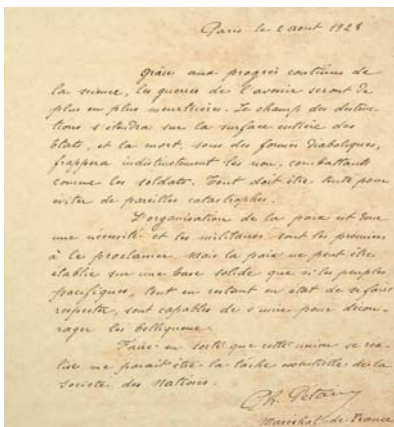 Paris le 2 aout 1928
Grâce aux progrès continus de
la science, les guerres de l'avenir seront de
plus en plus meurtrières. Le champ des destruc-
tions s'étendra sur la surface entière des
Etats, et la mort, sous des formes diaboliques,
frappera indistinctement les non-combattants
comme les soldats. Tout doit être tenté pour
éviter de pareilles catastrophes.
L'organisation de la paix est donc
une nécessité et les militaires sont les premiers
à le proclamer. Mais la paix ne peut être
établie sur une base solide que si les peuples
pacifiques, tout en restant en état de se faire
respecter, sont capables de s'unir pour décou-
rager les belliqueux.
Faire en sorte que cette union se réa-
lise me parait être la tâche essentielle de la
Société des Nations.
Ph. Pétain
Maréchal de France